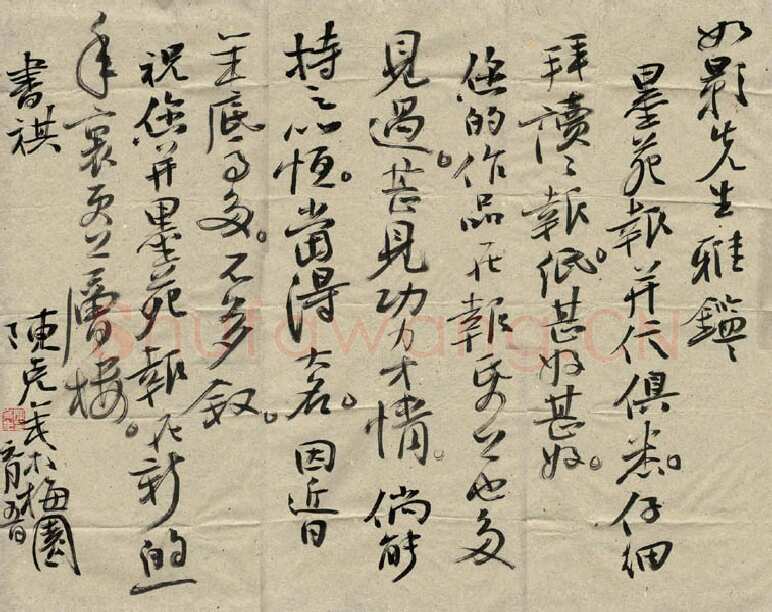 如影先生雅鑑
墨苑報并信俱悉。仔細
拜讀了報紙。甚好甚好。
您的作品在報紙上也多
見過。甚見功力才情。倘能
持之以恆。當得大名。因近日
年底事多。不多敘。
祝您并墨苑報在新的
年裏更上層樓。
書祺
陳 於梅園
元月五日
Shufawang.CN